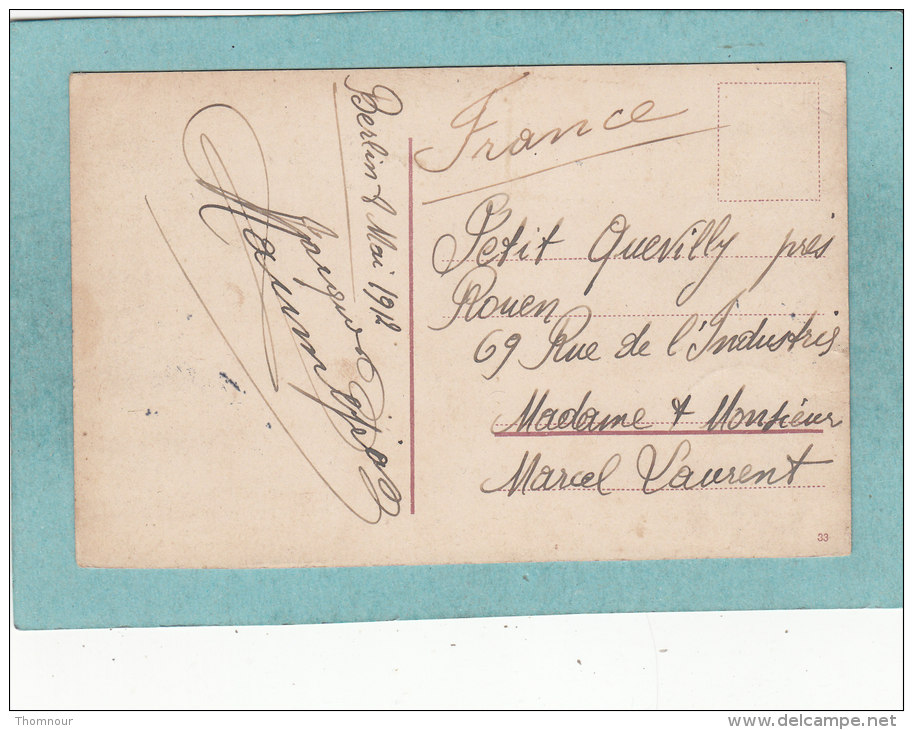 Berlin 8 Mai 1912
France
Petit Quevilly près
Rouen
69 Rue de l'Industrie
Madame & Monsieur
Marcel Laurent
33
Thomnour
delcampe.net